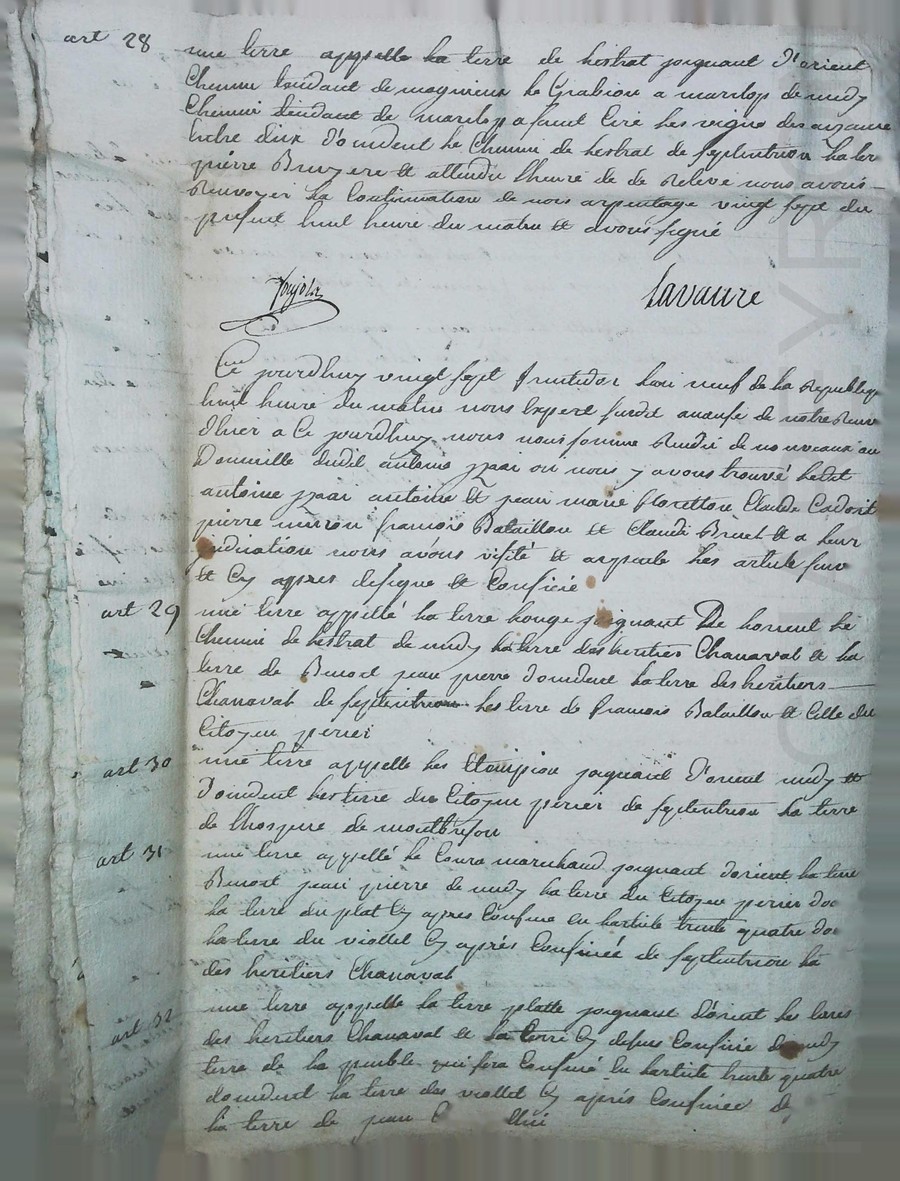 art 28 une terre appelle la terre de lestrat joignant d'orient
Chemin tendant de magnieux le Grabion a marclop de midy
Chemin tendant de marclop a saint Ciré les vigne des
entre deux d'occident le Chemin de lestrat de septentrion la ter
pierre Bruyere et attendu lheure de de Relevé nous avons
Renvoyer la Continuation de nous arpentage vingt sept du
présent huit heure du matin et avons signé
Lavaure
Ce jourdhuy vingt sept fructidor lan neuf de la Republique
huit heure du matin nous Expert susdit ensuite de notre Renvoy
dhier a Ce jourdhuy nous nous somme Rendu de nouveaux au
Domicille dudit antoine jzaai ou nous y avons trouvé ledit
antoine jzaai antoine et jean marie floretton Claude Cadorit
pierre miron francois Bataillon et Claude Bruet et a leur
judication nous avons visité et arpenté les article suiv
et Cy apprès desigue et Confiné
art 29 une terre appellé la terre Rouge joignant De lorient le
Chemin de lestrat de midy la terre des heritiers Chanaval et la
terre de Benoit jean pierre doccident la terre des heritiers
Chanaval de septentrion les terre de francois Bataillon et Celle du
Citoyen perier
art 30 une terre appelle les joignant d'orient midy et
doccident les terre du Citoyen perier de septentrion la terre
de lhospice de montbrison
art 31 une terre appellé le Coura marchand joignant dorient la terre
Benoit jean pierre de midy la terre du Citoyen perier doc
la terre du plat Cy apres Confiné en larticle trente quatre doc
la terre du viollet Cy après Confinée de septentrion la
des heritiers Chanaval
art 32 une terre appelle la terre platte joignant dorient les terres
des heritiers Chanaval et la terre Cy depuis Confinée de midy
terre de la qui sera Confiné en larticle trente quatre
doccident la terre des viollet Cy après Confinée de
la terre de jean